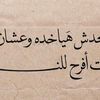 حدش هياخده وعشان
ت أفوح للنـ